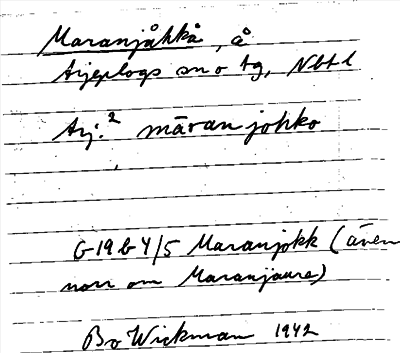 Maranjåhkå, å
Arjeplogs sn o tg, Nbtl
Arj.² māran johko
G19 b 4/5 Maranjokk (även
norr om Maranjaure)
Bo Wickman 1942